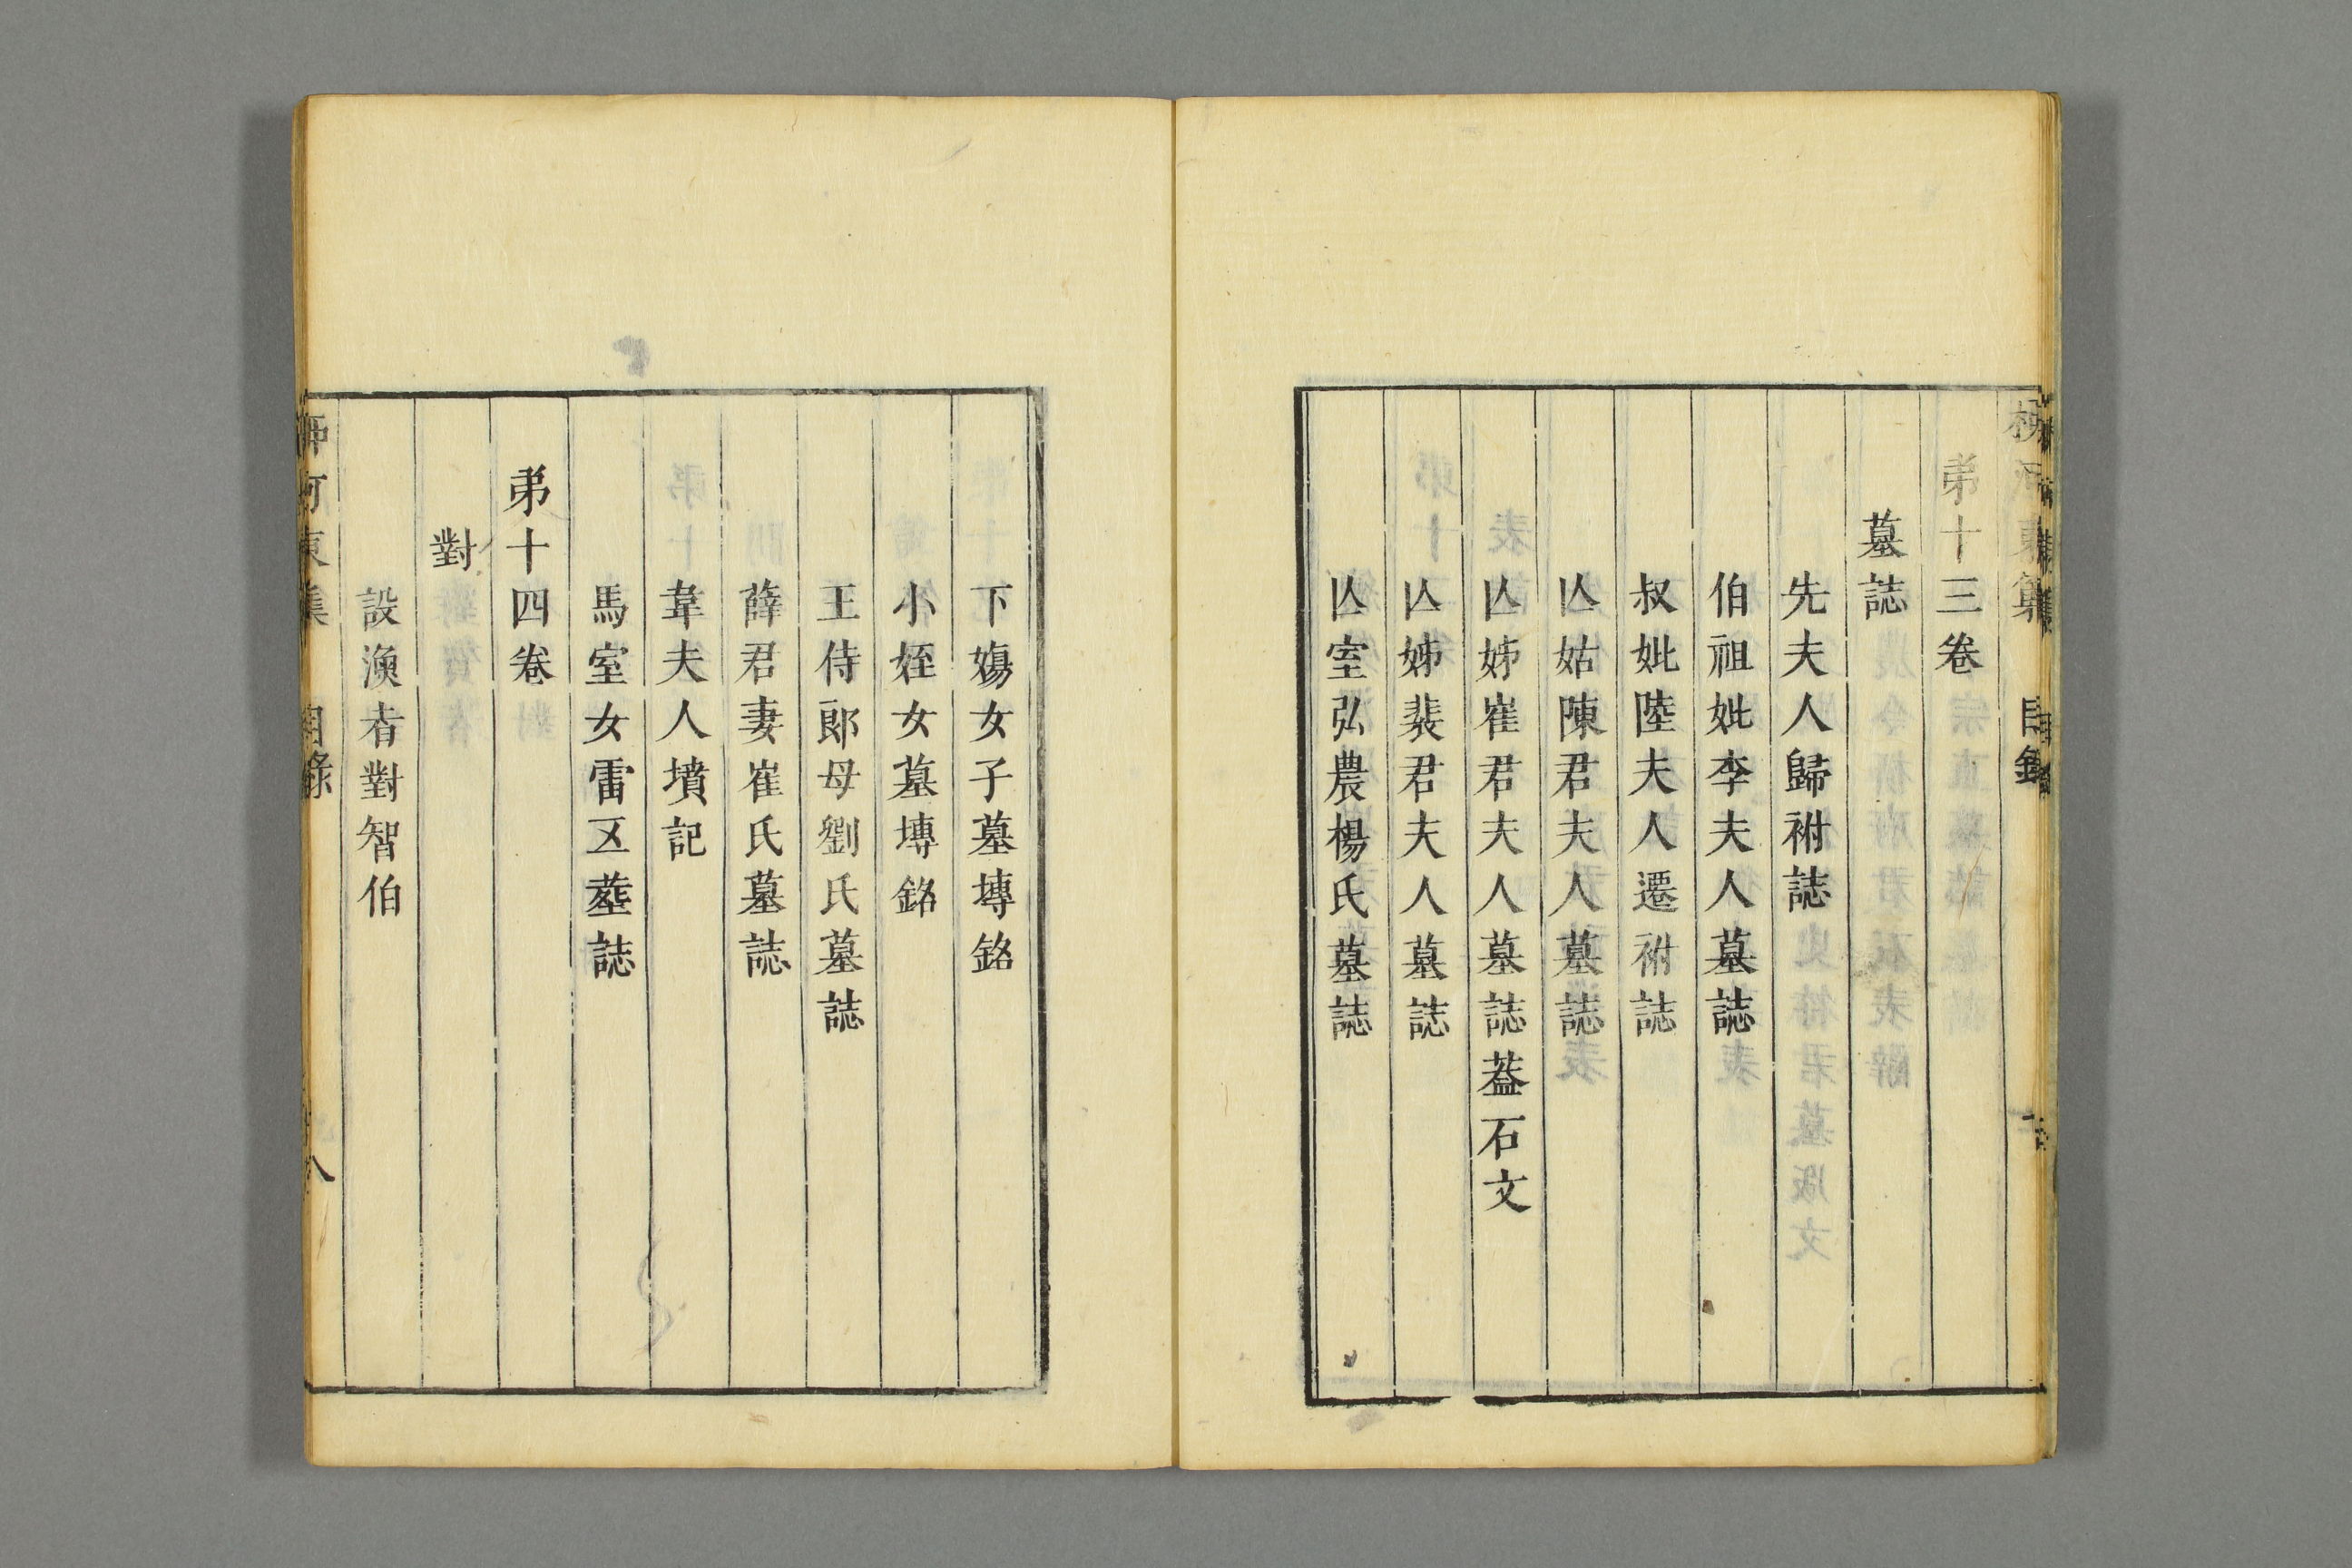 柳河東集 目錄
弟十三卷
墓誌
先夫人歸祔誌
伯祖妣李夫人墓誌
叔妣陸夫人遷祔誌
亾姑陳君夫人墓誌
亾姊崔君夫人墓誌葢石文
亾姊裴君夫人墓誌
亾室弘農楊氏墓誌
下殤女子墓塼銘
小姪女墓塼銘
王侍郎母劉氏墓誌
薛君妻崔氏墓誌
韋夫人墳記
馬室女雷五葬誌
弟十四卷
對
設漁者對智伯
柳河東集 目錄 八